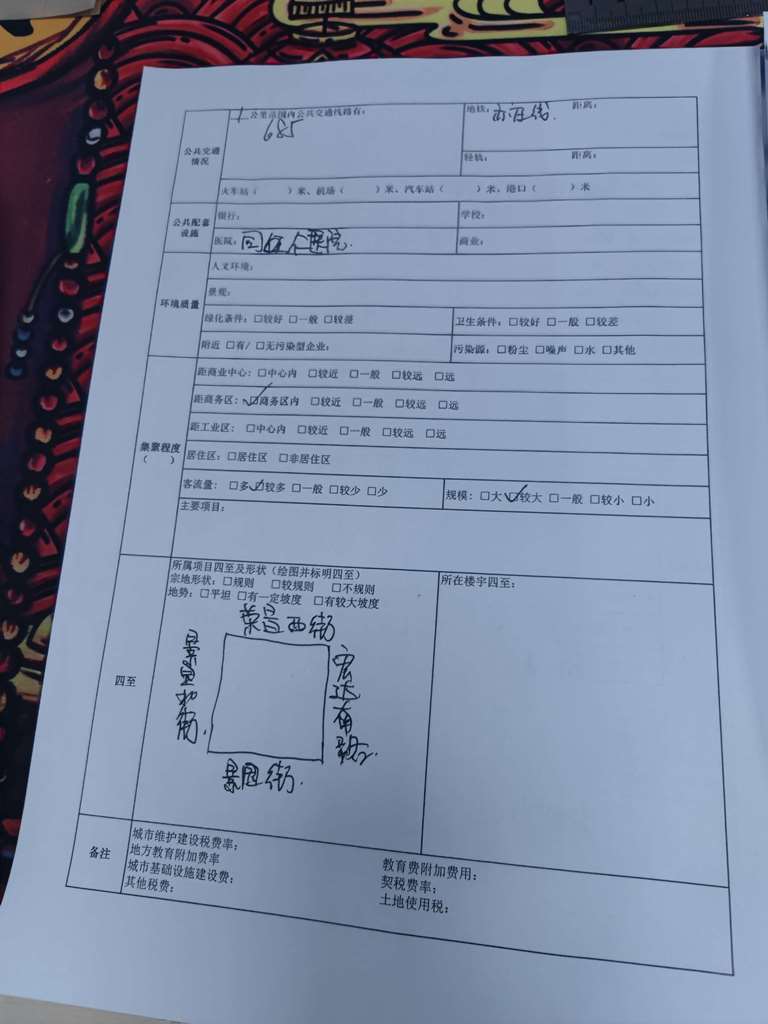 公共交通情况
1公里范围内公共交通线路有：
685
地铁：亦庄线. 距离：
轻轨： 距离：
火车站（ ）米、机场（ ）米、汽车站（ ）米、港口（ ）米
公共配套设施
银行： 学校：
医院：同仁医院. 商业：
环境质量
人文环境：
景观：
绿化条件：□较好 □一般 □较差 卫生条件：□较好 □一般 □较差
附近 □有/ □无污染型企业： 污染源：□粉尘 □噪声 □水 □其他
集聚程度（ ）
距商业中心：□中心内 □较近 □一般 □较远 □远
距商务区：☑商务区内 □较近 □一般 □较远 □远
距工业区：□中心内 □较近 □一般 □较远 □远
居住区：□居住区 □非居住区
客流量：□多 ☑较多 □一般 □较少 □少 规模：□大 ☑较大 □一般 □较小 □小
主要项目：
四至
所属项目四至及形状（绘图并标明四至） 所在楼宇四至：
宗地形状：□规则 □较规则 □不规则
地势：□平坦 □有一定坡度 □有较大坡度
荣昌西街
景园北街.
宏达南路.
景园街.
备注
城市维护建设税费率； 教育费附加费用：
地方教育附加费率 契税费率；
城市基础设施建设费； 土地使用税；
其他税费；